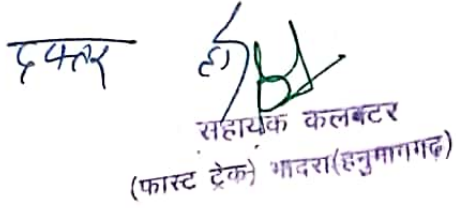 दफ्तर
सहायक कलक्टर
(फास्ट ट्रेक) भादरा(हनुमानगढ़)